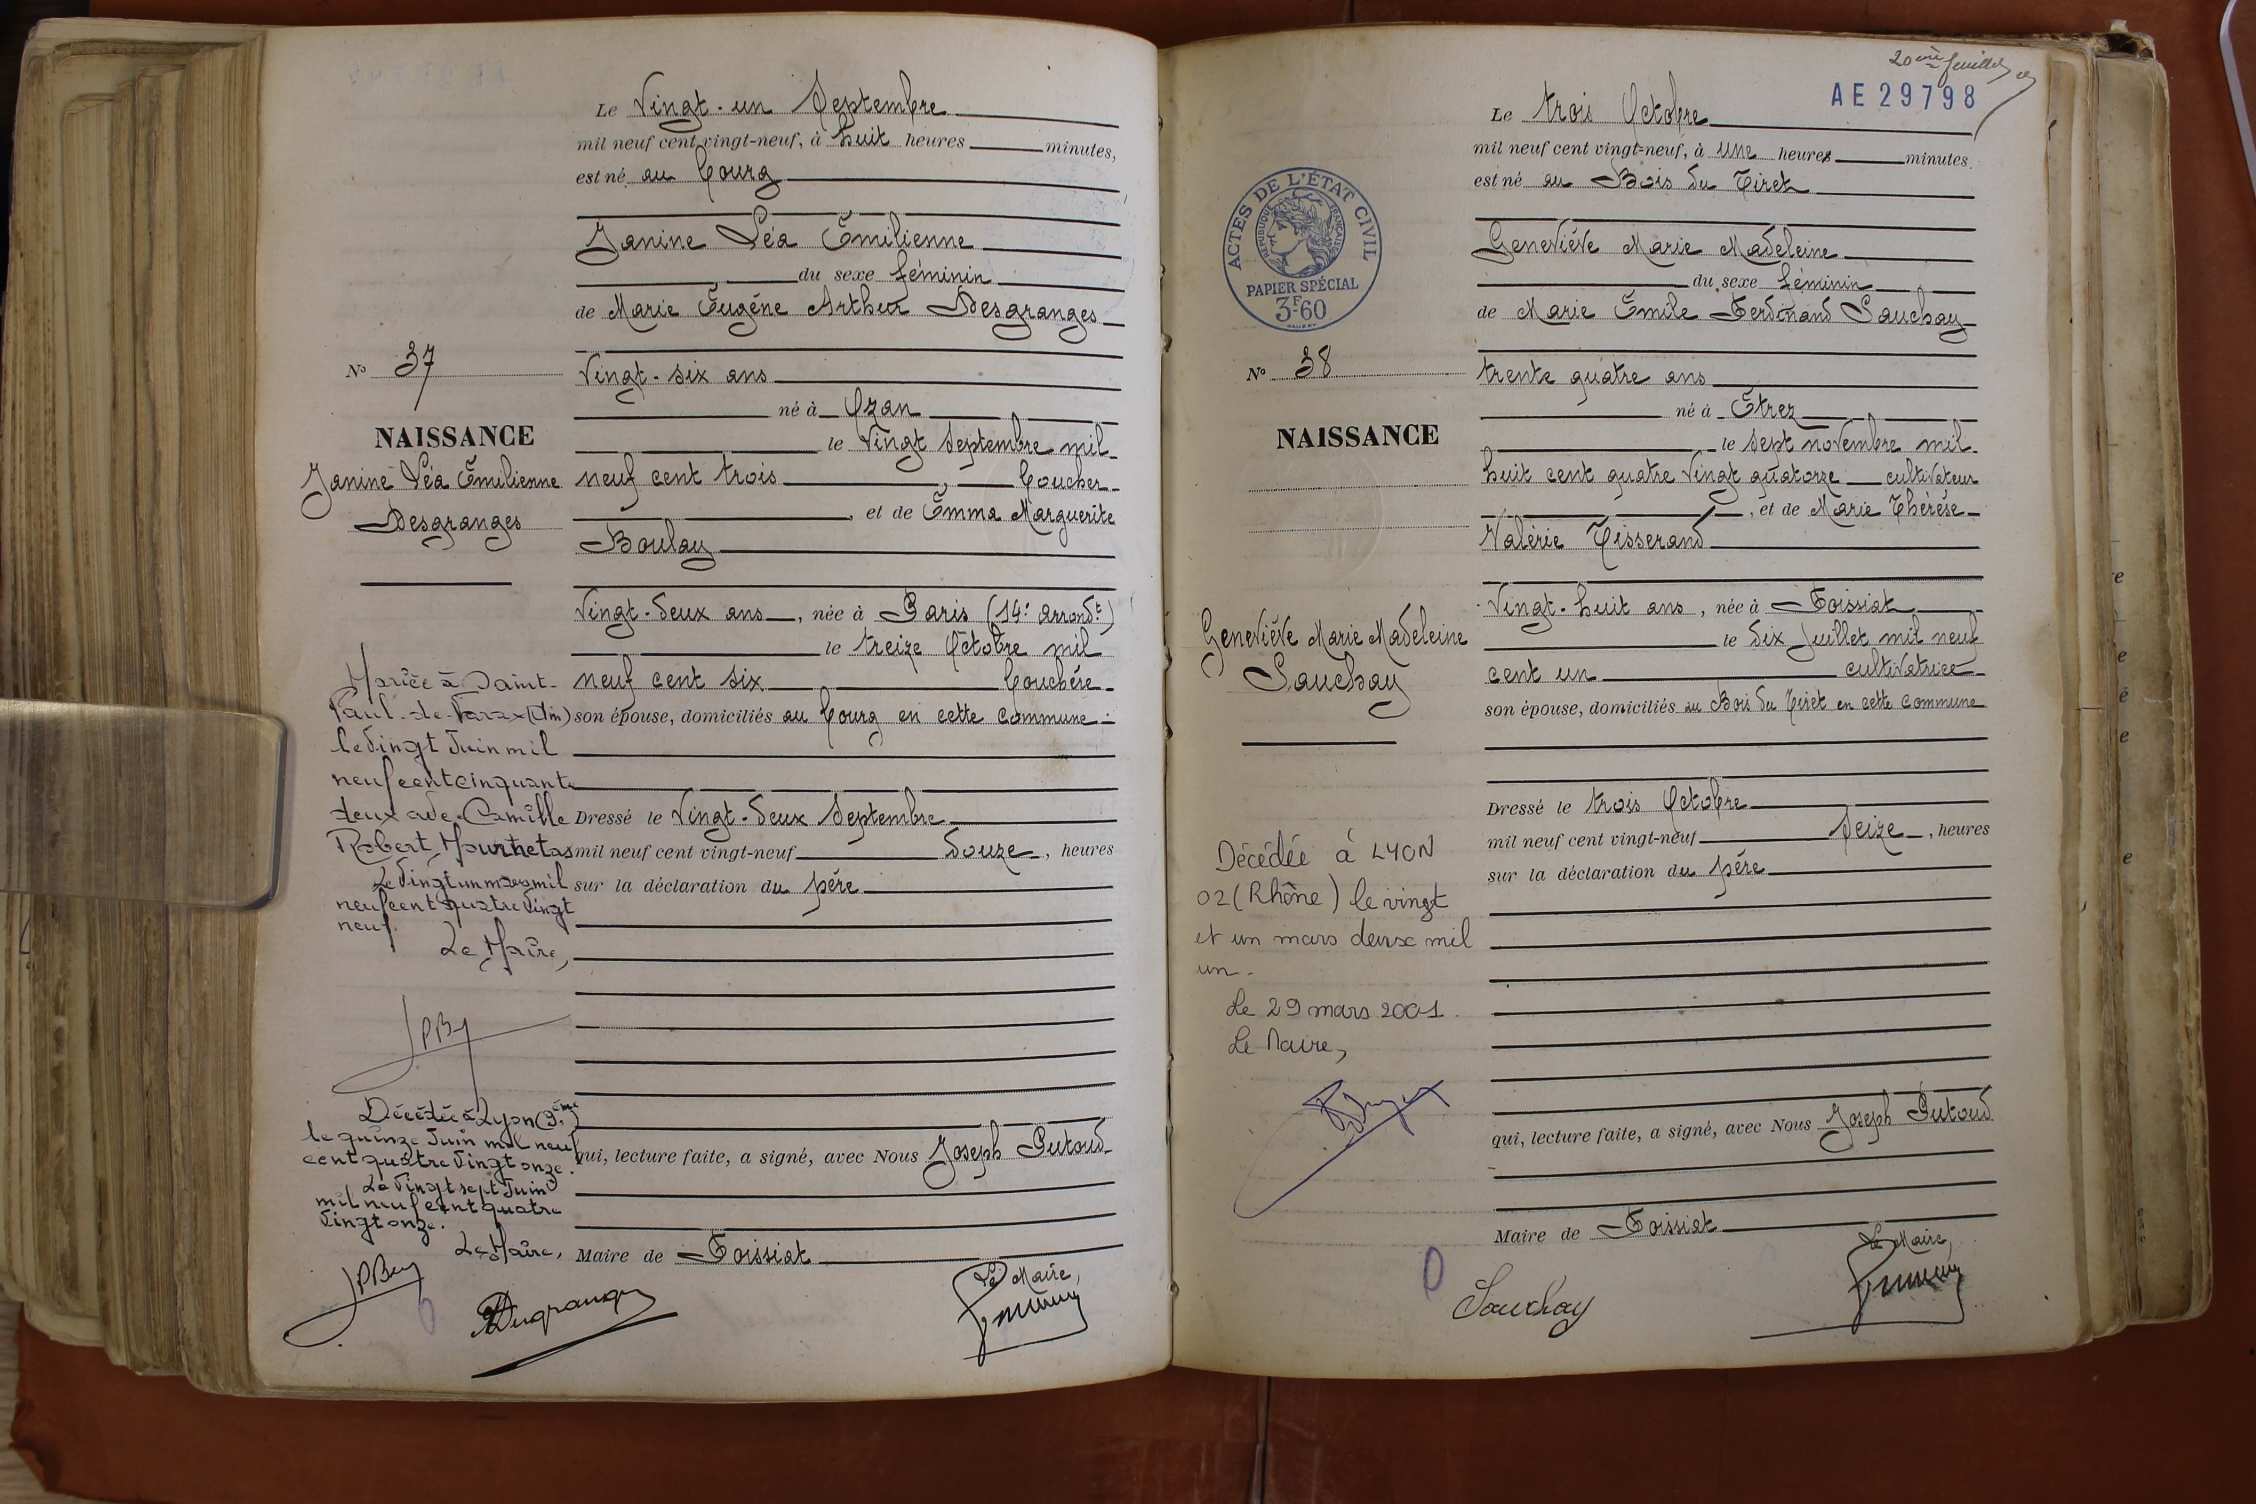 Le Vingt-un Septembre
mil neuf cent vingt-neuf, à huit heures minutes,
est né au Bourg
Janine Léa Émilienne
du sexe féminin
de Marie Eugène Arthur Desgranges
Vingt-six ans
né à Ozan
le Vingt Septembre mil
neuf cent trois, Boucher
, et de Emma Marguerite
Boulay
Vingt-deux ans, née à Paris (14e arrondt)
le treize Octobre mil
neuf cent six Bouchère
son épouse, domiciliés au Bourg en cette commune.
Dressé le Vingt-deux Septembre
mil neuf cent vingt-neuf douze, heures
sur la déclaration du père
qui, lecture faite, a signé, avec Nous Joseph Putoud
Maire de Foissiat
Le Maire,
No 37
NAISSANCE
Janine Léa Émilienne
Desgranges
Mariée à Saint-
Paul-de-Varax (Ain)
le vingt Juin mil
neuf cent cinquante
deux avec Camille
Robert
Le vingt un mars mil
neuf cent quatre vingt
neuf.
Le Maire,
Décédée à Lyon (3ème)
le quinze Juin mil neuf
cent quatre vingt onze.
Le vingt sept Juin
mil neuf cent quatre
vingt onze.
Le Maire,
20ème feuillet
AE 29798
Le trois Octobre
mil neuf cent vingt-neuf, à une heure minutes
est né au Bois du Tiret
Geneviève Marie Madeleine
du sexe féminin
de Marie Émile Ferdinand Sauchay
trente quatre ans
né à Étrez
le sept novembre mil
huit cent quatre vingt quatorze cultivateur
, et de Marie Thérèse
Valérie Tisserand
Vingt-huit ans, née à Foissiat
le dix Juillet mil neuf
cent un cultivatrice
son épouse, domiciliés au Bois du Tiret en cette commune
Dressé le trois Octobre
mil neuf cent vingt-neuf Seize, heures
sur la déclaration du père
qui, lecture faite, a signé, avec Nous Joseph Putoud
Maire de Foissiat
Le Maire,
Sauchay
ACTES DE L'ÉTAT CIVIL
RÉPUBLIQUE FRANÇAISE
PAPIER SPÉCIAL
3F60
No 38
NAISSANCE
Geneviève Marie Madeleine
Sauchay
Décédée à LYON
02 (Rhône) le vingt
et un mars deux mil
un.
Le 29 mars 2001.
Le Maire,